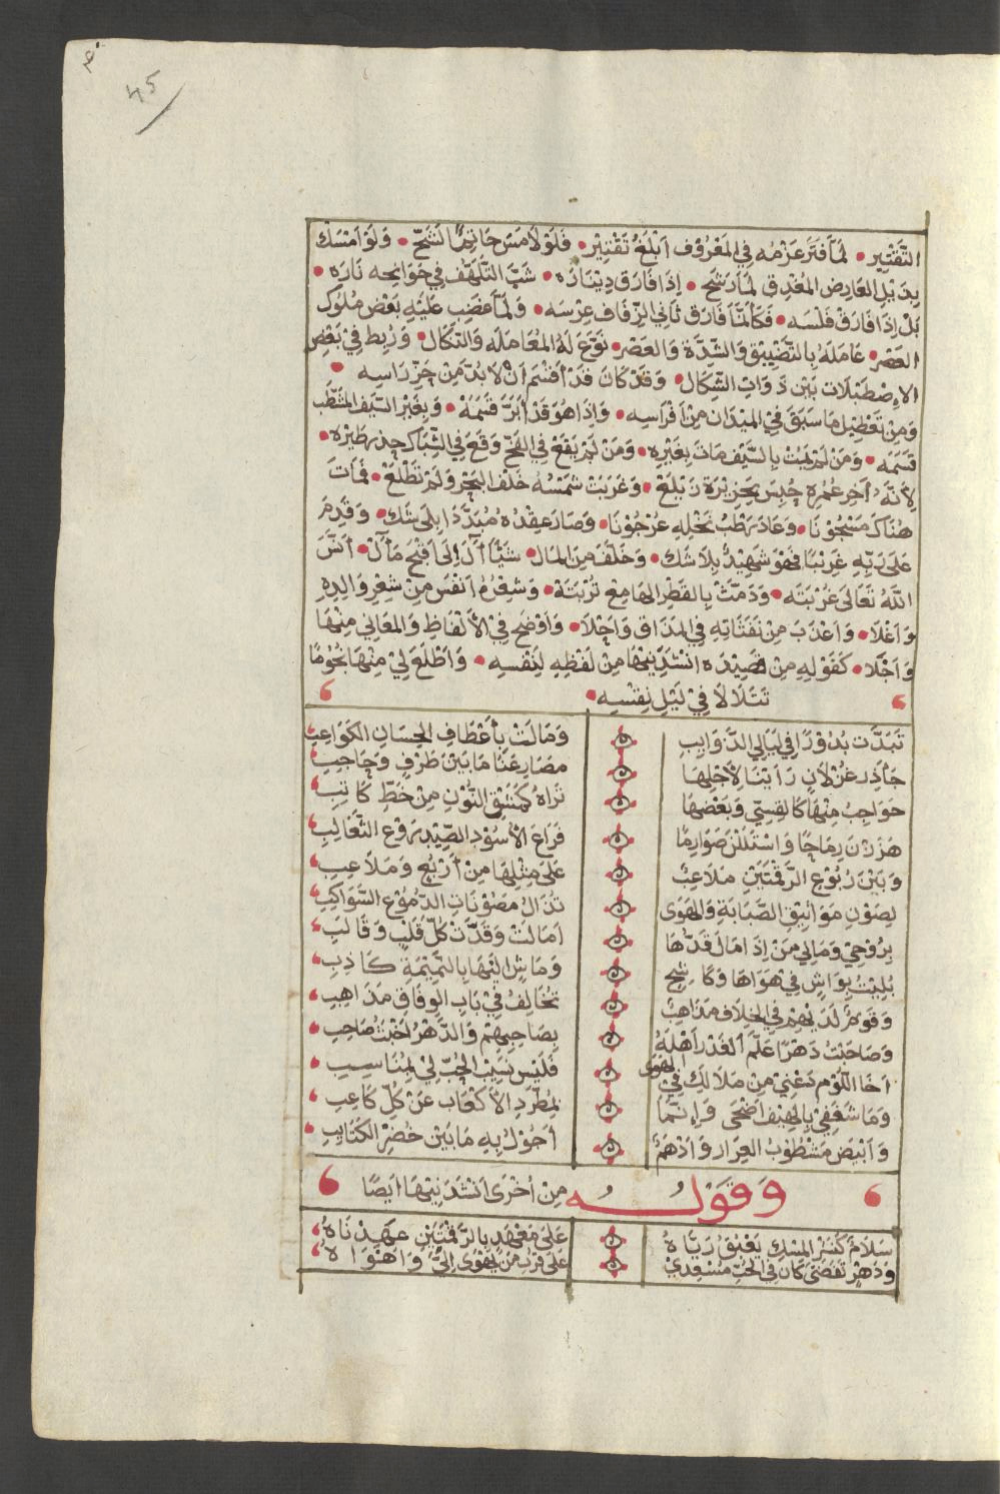 45
التَّقْتِير • لمَّا فَتَرَ عَزْمُه في المَعْرُوف أَبْلَغَ تَقْتِيْر • فَلَوْ لَامَسَ حَاتِمًا لَشَحّ • وَلَوْ اَمْسَكَ
بِذَيْلِ العَارِضِ المُغْدِق لمَا رَشَح • إِذَا فَارَقَ دِيْنَارَه • شَبَّ التَّلَهّف في جَوَانِحِه نَارَه •
بَلْ إِذَا فَارَقَ فَلْسَه • فَكَأَنَّمَا فَارَقَ ثَانِي الزِّفَافِ عِرْسَه • وَلمَّا غَضِبَ عَلَيْهِ بَعْضُ مُلُوكِ
العَصْر • عَامَلَهُ بِالتَّضْيِيْقِ وَالشِّدَّة وَالعَصْر • نَوَّعَ لَهُ المُعَامَلَه وَالنَّكَال • وَرُبِطَ فِي بَعْضِ
الاِصْطَبْلَات بَيْنَ ذَوَاتِ الشِّكَال • وَقَدْ كَانَ قَدْ أَقْسَمَ أَنْ لَا بُدَّ مِنْ حَزِّ رَاسِه •
وَمِنْ تَعْطِيْلِ مَا سَبَقَ فِي المَيْدَان مِنْ اَفْرَاسِه • وَإِذَا هُوَ قَدْ أَبَرَّ قَسَمَهُ • وَبِغَيْرِ السَّيْف المُشَطَّب
قَسَمَه • وَمَنْ لَمْ يَمُتْ بِالسَّيْفِ مَاتَ بِغَيْرِه • وَمَنْ لَمْ يَقَعْ فِي الفَخّ وَقَعَ فِي الشِّبَاك طَيْرُه •
لِأَنَّهُ اَخِرَ عُمْرِه حُبِسَ بِجَزِيْرَة زَيْلَعْ • وَغَرَبَتْ شَمْسُهُ خَلْفَ البَحْرِ وَلَمْ تَطْلَعْ • فَمَاتَ
هُنَاكَ مَسْجُوْنَا • وَعَادَ رَطْبُ نَخْلِهِ عُرْجُوْنَا • وَصَارَ عِقْدُهُ مُبَدَّدَا بِلَى شَك • وَقَدِمَ
عَلَى رَبِّهِ غَرِيْبًا فَهْوَ شَهِيْدٌ بِلَا شَك • وَخَلَّفَ مِنَ المَال • شَيْئًا آلَ إِلَى اَقْبَحِ مَآل • آنَسَ
اللَّهُ تَعَالَى غُرْبَتَه • وَدَمَّثَ بِالقَطْرِ الهَامِعِ تُرْبَتَهْ • وَشِعْرُهُ اَنْفَسُ مِنْ شِعْرِ وَالِدِهِ
وَاَغْلَا • وَاَعْذَبُ مِنْ نَفَثَاتِهِ فِي المَذَاق وَاَحْلَا • وَاَوْضَحُ فِي الْأَلْفَاظِ وَالمَعَانِي مِنْهَا
وَاَجْلَا • كَقَوْلِهِ مِنْ قَصِيْدَه اَنْشَدَنِيْهَا مِنْ لَفْظِهِ لِنَفْسِه • وَاَطْلَعَ لِيْ مِنْهَا نُجُوْمًا
تَتَلَالَا فِي لَيْلِ نِقْسِه •
تَبَدَّت بُدُوْرًا فِي لَيَالِي الذَّوَايِبِ وَمَالَتْ بِأَعْطَافِ الحِسَانِ الكَوَاعِبِ
جَآذِرُ غزْلَانٍ رَاَيْنَا لِأَجْلِهَا مَصَارِعَنَا مَا بَيْنَ طَرْفٍ وَحَاجِبِ
حَوَاجِبُ مِنْهَا كَالقِسِيِّ وَبَعْضُهَا تَرَاهُ كَمَشْقِ النُّوْنِ مِنْ خَطِّ كَاتِبِ
هَزَزْنَ رِمَاحًا وَاسْتَلَلْنَ صَوَارِمًا فَرَاعَ الأُسُوْد الصِّيْد رَوْع الثَّعَالِبِ
وَبَيْنَ رُبُوْعِ الرَّقْمَتَيْنِ مَلَاعِبٌ عَلَى مِثْلِهَا مِنْ أَرْبُعٍ وَمَلَاعِبِ
لِصَوْنِ مَوَاثِيْقِ الصَّبَابَةِ وَالهَوَى تُذَالُ مَصُوْنَاتِ الدُّمُوْعِ السَّوَاكِبِ
بِرُوْحِيْ وَمَالِي مَنْ إِذَا مَالَ قَدُّهَا اَمَالَتْ وَقَدَّتْ كُلَّ قَلْبٍ وَقَالَبِ
بُلِيْتُ بِوَاشٍ فِي هَوَاهَا وَكَاشِحٍ وَمَاشٍ اِلَيْهَا بِالنَّمِيْمَةِ كَاذِبِ
وَقَوْمٌ لَدَيْهِمْ فِي الخِلَافِ مَذَاهِبٌ تُخَالِفُ فِي بَابِ الوِفَاقِ مَذَاهِبِ
وَصَاحَبْتُ دَهْرًا عَلَّمَ الغَدْرَ أَهْلَهُ بِصَاحِبِهِمْ وَالدَّهْرُ اَخْبَثُ صَاحِبِ
اَخَا اللَّوْمِ دَعْنِيْ مِنْ مَلَامِكَ فِي الهَوَى فَلَيْسَ نَسِيْبُ الحُبِّ لِيْ بِمُنَاسِبِ
وَمَا شَغَفِيْ بِالهِيْفِ اَضْحَى وَإِنَّمَا بِمُطَّرِدِ الأَكْعَابِ عَنْ كُلِّ كَاعِبِ
وَاَبْيَضَ مَشْطُوْبِ الغِرَارِ وَاَدْهَمٍ اَجُوْلُ بِهِ مَا بَيْنَ خُضْرِ الكَتَايِبِ
وَقَوْلُهُ مِنْ اُخْرَى اَنْشَدَنِيْهَا اَيْضًا
سَلَامٌ كَنَشْرِ المِسْكِ يَعْبَقُ رَيَّاهُ عَلَى مَعْهَدٍ بِالرَّقْمَتَيْنِ عَهِدْنَاهُ
وَدَهْرٌ تَقَضَّى كَانَ فِي الحُبِّ مُسْعِدِيْ عَلَى قُرْبِ مَنْ يَهْوَى إِلَيَّ وَاَهْوَاهُ